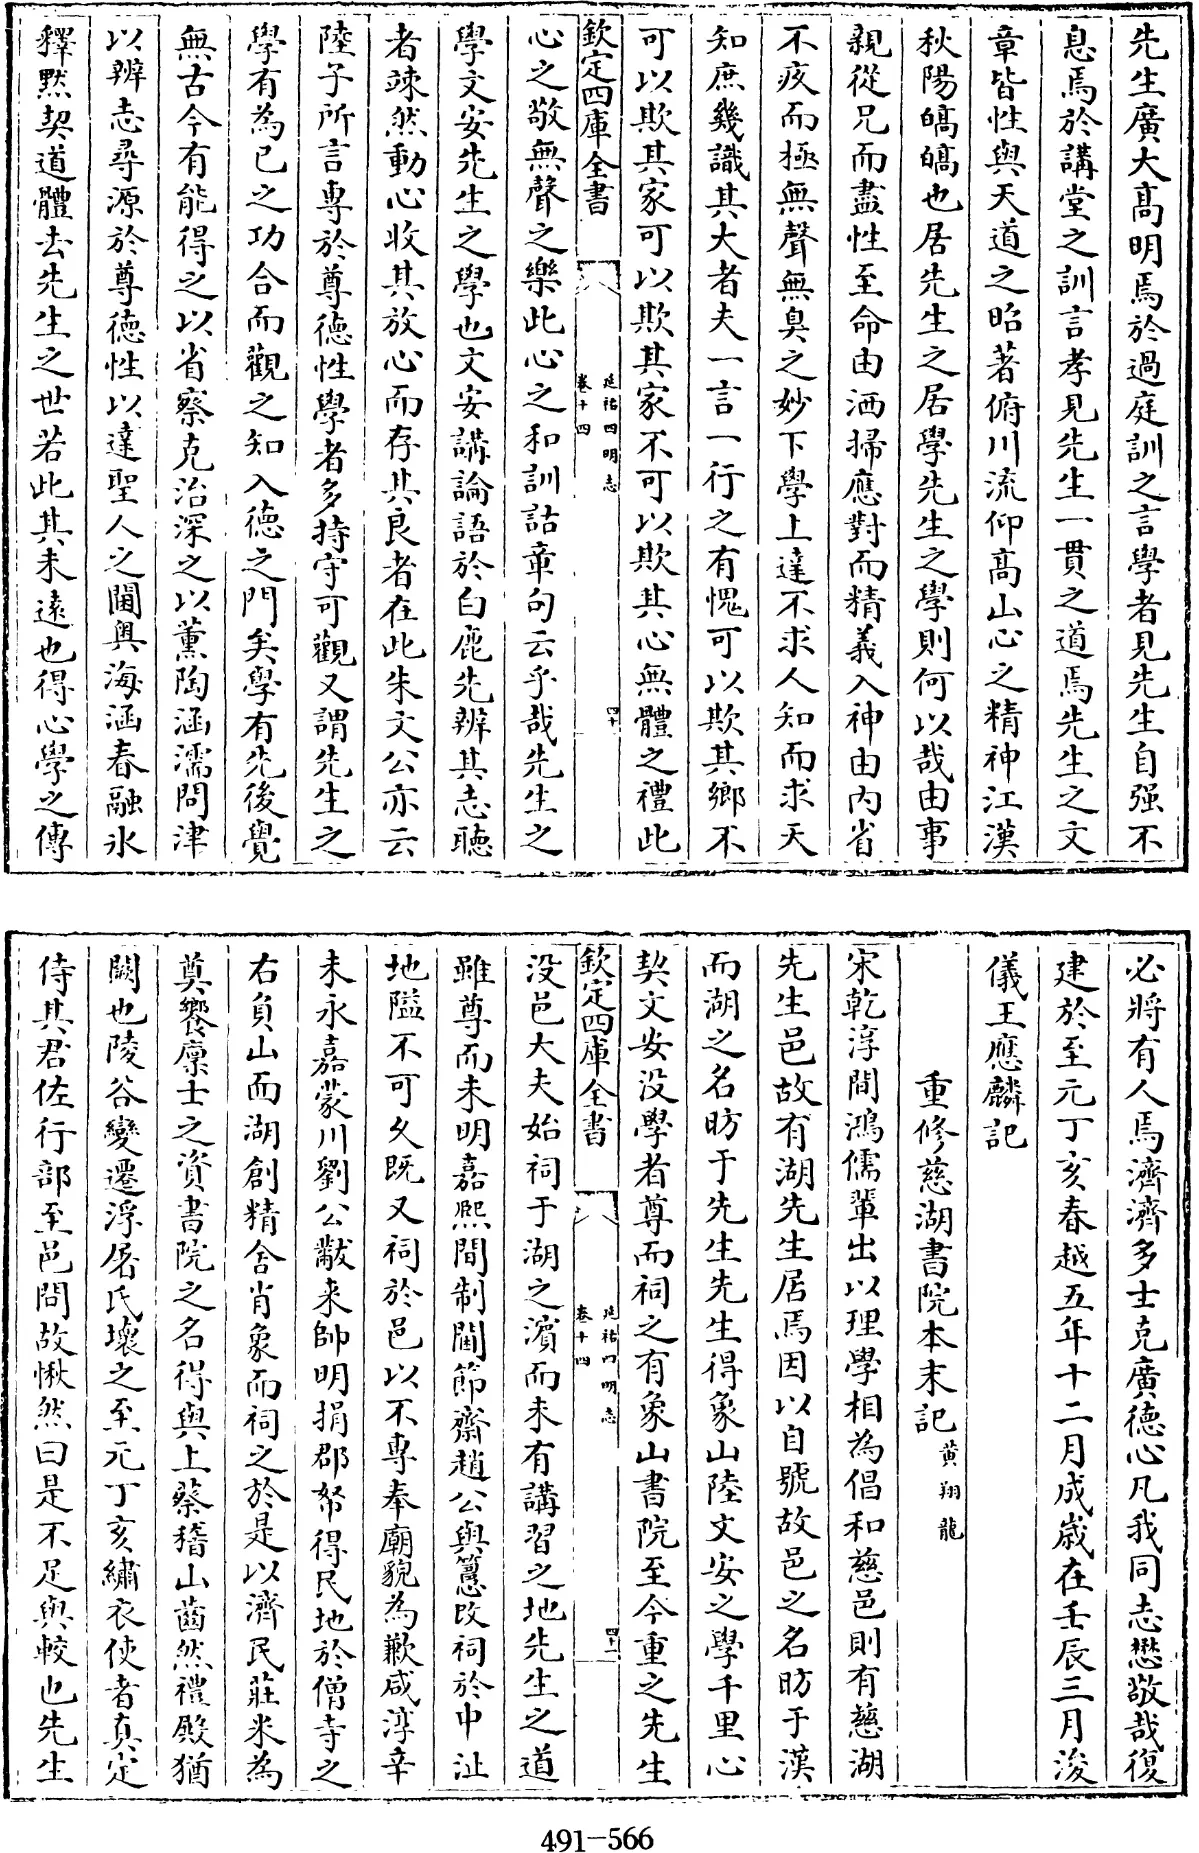 先生廣大髙明焉於過庭訓之言學者見先生自强不
息焉於講堂之訓言孝見先生一貫之道焉先生之文
章皆性與天道之昭著俯川流仰髙山心之精神江漢
秋陽皜皜也居先生之居學先生之學則何以哉由事
親從兄而盡性至命由洒掃應對而精義入神由内省
不疚而極無聲無臭之妙下學上達不求人知而求天
知庶幾識其大者夫一言一行之有愧可以欺其鄉不
可以欺其家可以欺其家不可以欺其心無體之禮此
欽定四庫全書
延祐四明志
卷十四
四十
心之敬無聲之樂此心之和訓詁章句云乎哉先生之
學文安先生之學也文安講論語於白鹿先辨其志聴
者竦然動心收其放心而存其良者在此朱文公亦云
陸子所言専於尊德性學者多持守可觀又謂先生之
學有為已之功合而觀之知入德之門矣學有先後覺
無古今有能得之以省察克治深之以薰陶涵濡問津
以辨志尋源於尊德性以達聖人之閫奥海涵春融氷
釋黙契道體去先生之世若此其未遠也得心學之傳
必將有人焉濟濟多士克廣德心凡我同志懋敬哉復
建於至元丁亥春越五年十二月成嵗在壬辰三月浚
儀王應麟記
重修慈湖書院本末記
黄翔龍
宋乾淳間鴻儒輩出以理學相為倡和慈邑則有慈湖
先生邑故有湖先生居焉因以自號故邑之名昉于漢
而湖之名昉于先生先生得象山陸文安之學千里心
契文安没學者尊而祠之有象山書院至今重之先生
欽定四庫全書
延祐四明志
卷十四
四十一
没邑大夫始祠于湖之濵而未有講習之地先生之道
雖尊而未明嘉熙間制閫節齋趙公與𥲅改祠於中沚
地隘不可乆既又祠於邑以不専奉廟貌為歉咸淳辛
未永嘉蒙川劉公黻来帥明捐郡帑得民地於僧寺之
右負山而湖創精舍肖象而祠之於是以濟民莊米為
奠饗廩士之資書院之名得與上蔡稽山齒然禮殿猶
闕也陵谷變遷浮屠氏壞之至元丁亥繡衣使者真定
侍其君佐行部至邑問故愀然曰是不足與較也先生
491-566